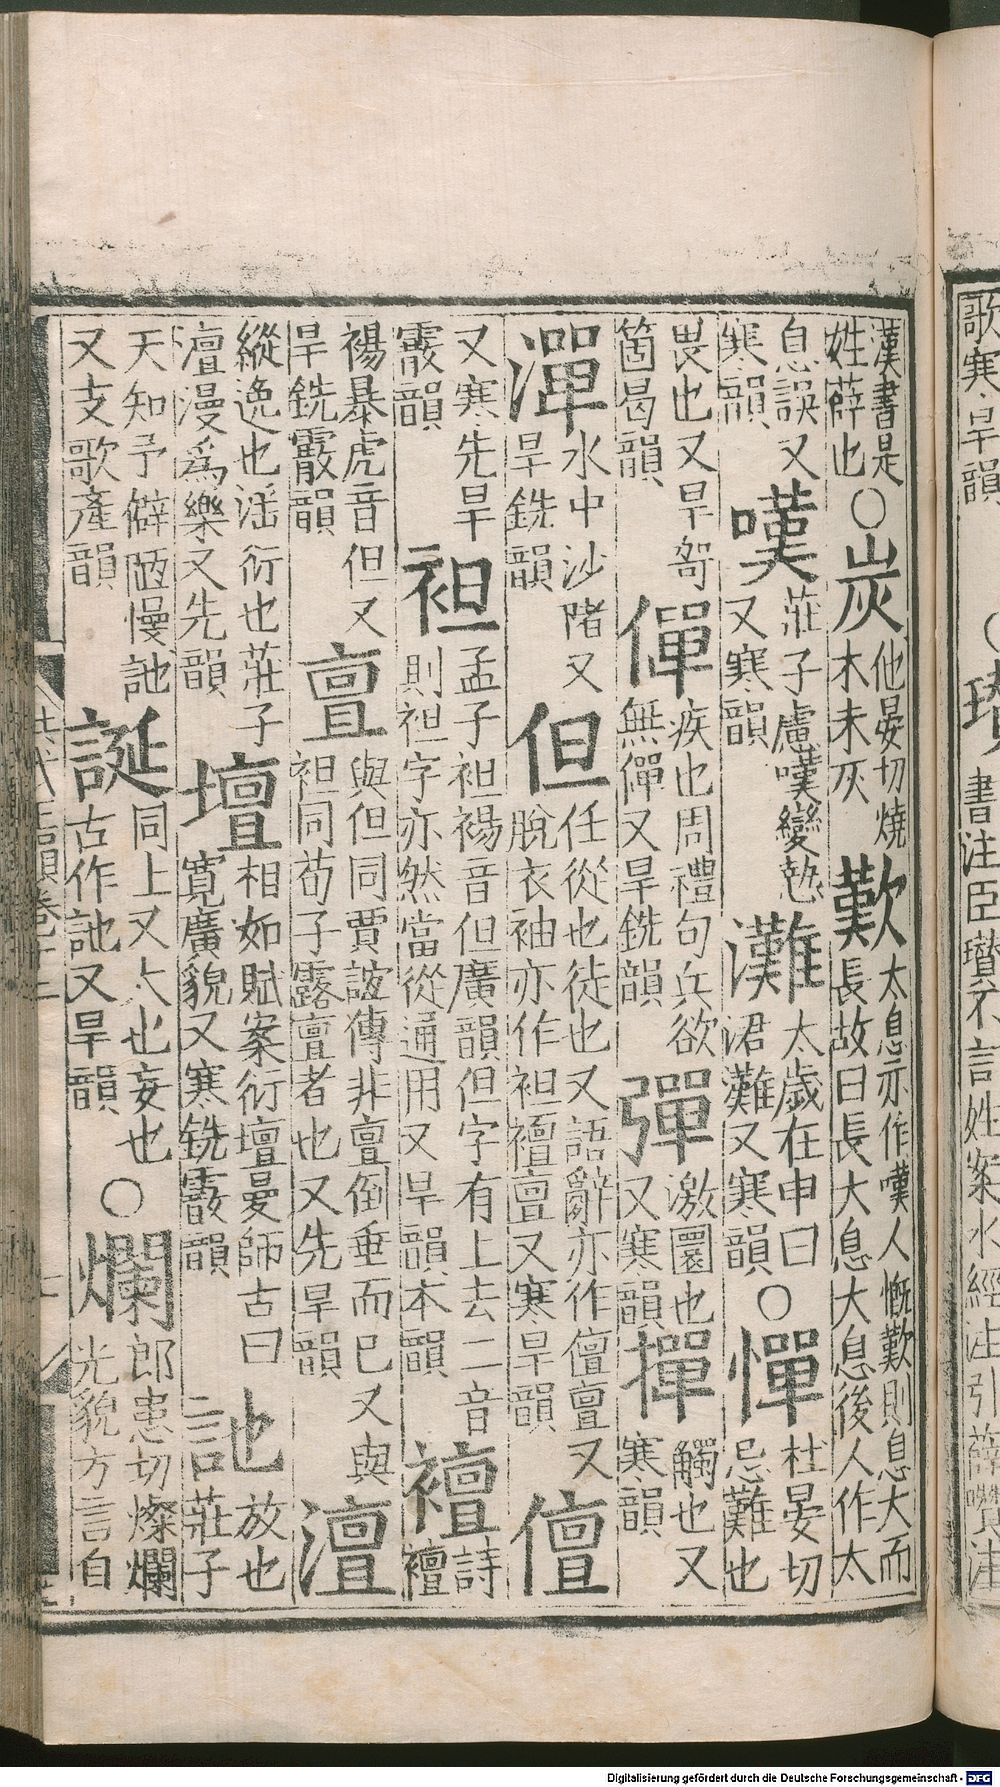 歌寒旱韻○書注臣瓚不言姓案水經注引薛瓚注
漢書是姓薛也○炭他晏切燒木未灰歎太息亦作嘆人慨歎則息大而長故曰長大息大息後人作太
息誤又寒韻嘆莊子慮嘆變慹又寒韻灘太歲在申曰涒灘又寒韻○憚杜晏切忌難也
畏也又旱哿箇曷韻僤疾也周禮句兵欲無僤又旱銑韻彈激圜也又寒韻撣觸也又寒韻
潬水中沙陼又旱銑韻但任從也徒也又語辭亦作儃亶又脫衣袖亦作袒襢亶又寒旱韻儃
又寒先旱霰韻袒孟子袒裼音但廣韻但字有上去二音則袒字亦然當從通用又旱韻本韻襢詩襢
裼暴虎音但又旱銑霰韻亶與但同賈誼傳非亶倒垂而巳又與袒同荀子露亶者也又先旱韻澶
縱逸也滛衍也莊子澶漫爲樂又先韻壇相如賦案衍壇曼師古曰寬廣貌又寒銑霰韻訑放也莊子
天知予僻陋慢訑又支歌產韻誕同上又大也妄也古作訑又旱韻○爛郎患切燦爛光貌方言自
Digitalisierung gefördert durch die Deutsche Forschungsgemeinschaft - DFG